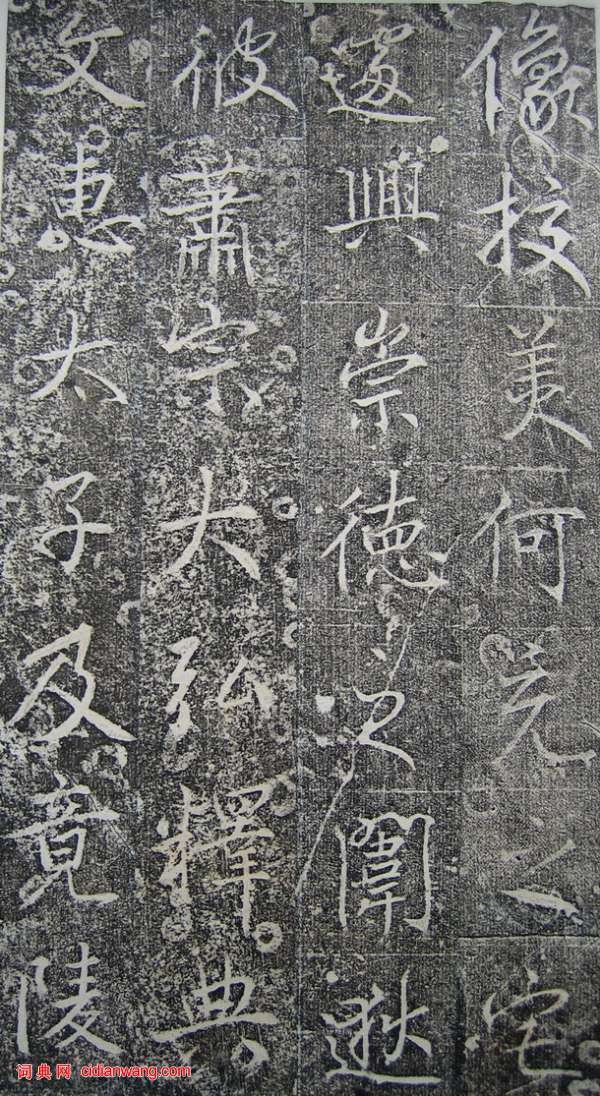 像挍美何充之宅
遂興崇德之闈逖
彼蕭宗大弘釋典
文惠太子及竟陵
词典网 cidianwang.com